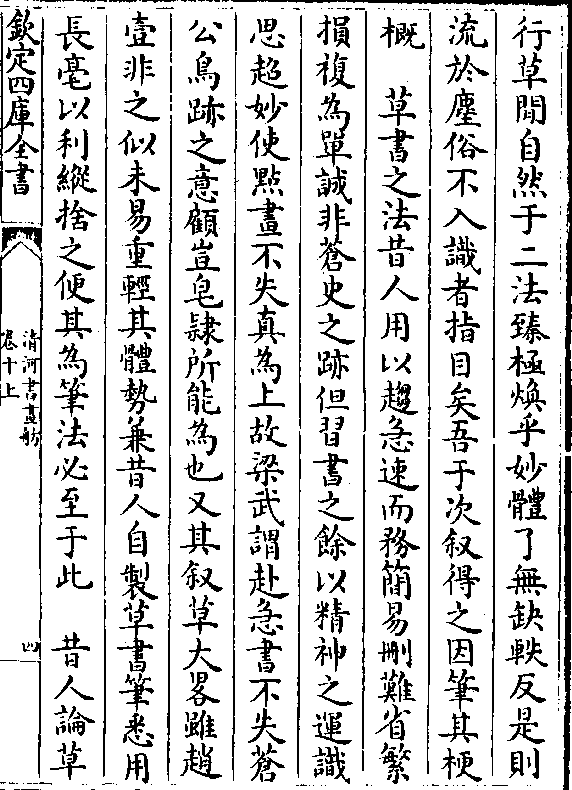 行草間自然于二法臻極煥乎妙體了無缺軼反是則
流於塵俗不入識者指目矣吾于次叙得之因筆其梗
概　草書之法昔人用以趨急速而務簡易刪難省繁
損複為單誠非蒼史之跡但習書之餘以精神之運識
思超妙使點畫不失真為上故梁武謂赴急書不失蒼
公鳥跡之意顧豈皂隸所能為也又其叙草大畧雖趙
壹非之似未易重輕其體勢兼昔人自製草書筆悉用
長毫以利縱捨之便其為筆法必至于此　昔人論草
欽定四庫全書
清河書畫舫
卷十上
四